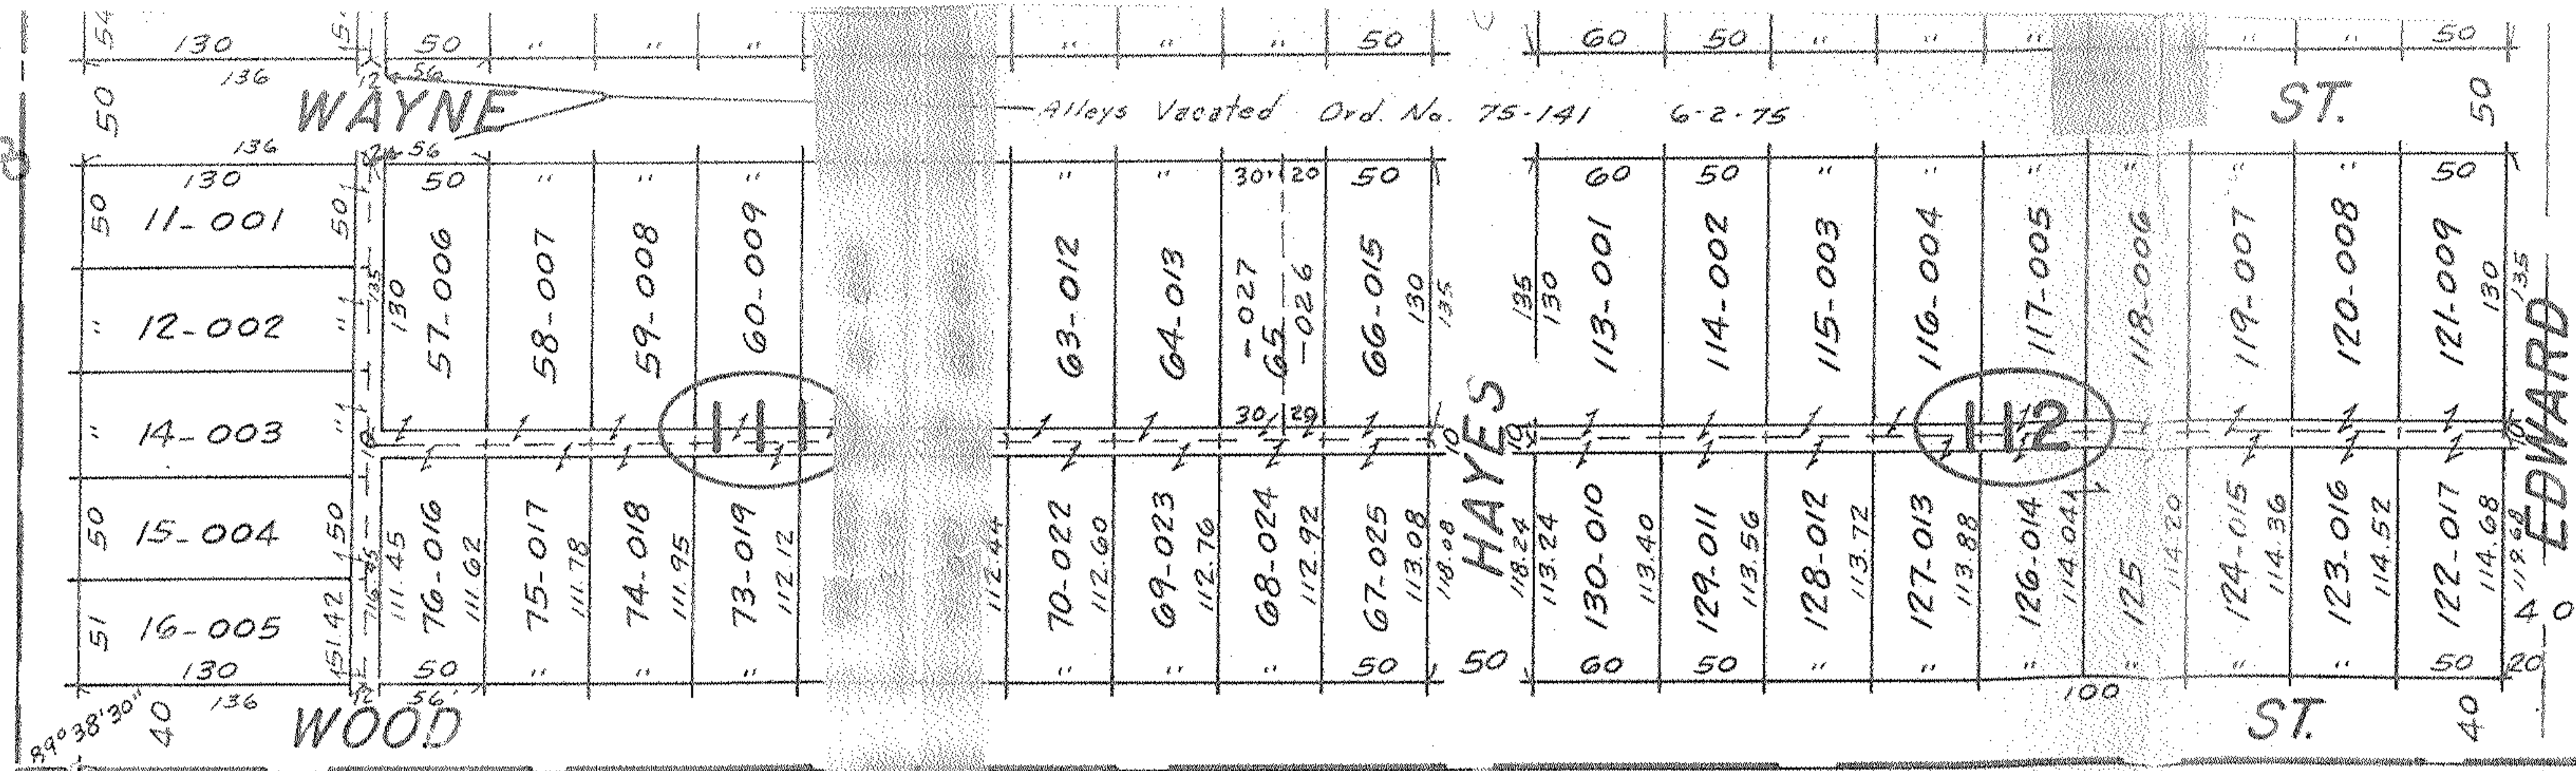 54 130 15. 50 " " " " " " 50 60 50 " " " " " 50
136 12 56
50 WAYNE Alleys Vacated Ord. No. 75-141 6-2-75 ST. 50
136 12 56
130 50 " " " " " 30 " 20 50 60 50 " " " " " " 50
50 11-001 50
" 12-002 "
" 14-003 "
50 15-004 50
51 16-005 51.42
130
136
135 130 57-006 58-007 59-008 60-009 63-012 64-013 -027 65 -026 66-015 130 135
135 130 113-001 114-002 115-003 116-004 117-005 118-006 119-007 120-008 121-009 130 135
10 111 30 20 10 HAYES 10 112 10 EDWARD
716.45 111.45 76-016 111.62 75-017 111.78 74-018 111.95 73-019 112.12 112.44 70-022 112.60 69-023 112.76 68-024 112.92 67-025 113.08 118.08
118.24 113.24 130-010 113.40 129-011 113.56 128-012 113.72 127-013 113.88 126-014 114.04 125 114.20 124-015 114.36 123-016 114.52 122-017 114.68 119.68
40
50 " " " " " " 50 50 60 50 " " " " " " 50 20
12 56' 100
89°38'30" 40 WOOD ST. 40